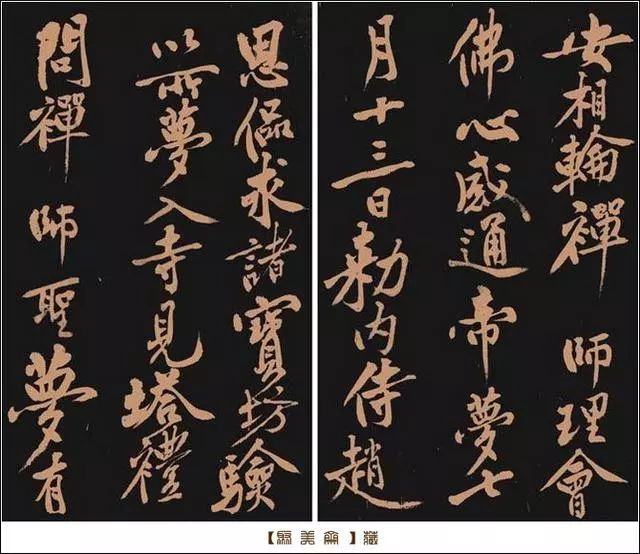 安相輪禪 師理會
佛心感通帝夢七
月十三日勅内侍趙
思偘求諸寶坊驗
以所夢入寺見塔禮
問禪 師聖夢有